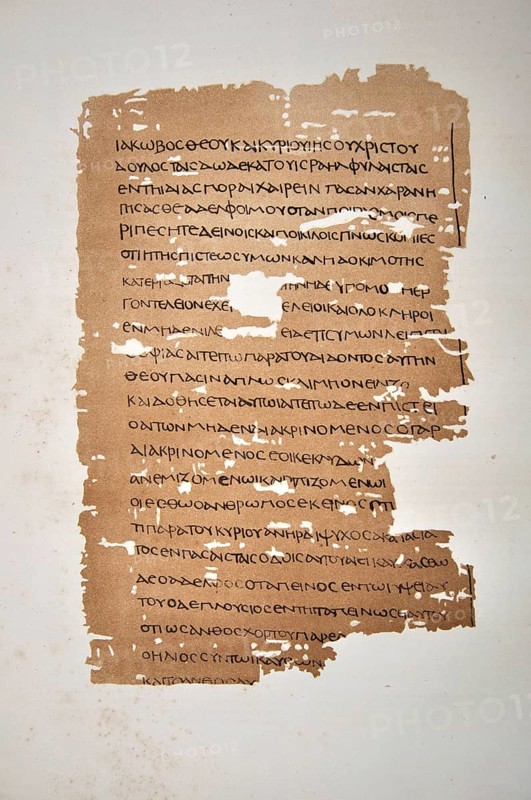 ΙΑΚΩΒΟϹΘΕΟΥΚΑΙΚΥΡΙΟΥΙΗϹΟΥΧΡΙϹΤΟΥ
ΔΟΥΛΟϹΤΑΙϹΔΩΔΕΚΑΤΟΥΙϹΡΑΗΛΦΥΛΑΙϹΤΑΙϹ
ΕΝΤΗΔΙΑϹΠΟΡΑΙΧΑΙΡΕΙΝΠΑϹΑΝΧΑΡΑΝΗ
ΓΗϹΑϹΘΕΑΔΕΛΦΟΙΜΟΥΟΤΑΝΠΕΙΡΑϹΜΟΙϹΠΕ
ΡΙΠΕϹΗΤΕΔΕΙΝΟΙϹΚΑΙΠΟΙΚΙΛΟΙϹΓΙΝΩϹΚΟΝΤΕϹ
ΟΤΙΗΤΗϹΠΙϹΤΕΩϹΥΜΩΝΚΑΛΗΔΟΚΙΜΟΤΗϹ
ΚΑΤΕΡΓΑΖΕΤΑΙΤΗΝ ΗΝΗΔΕΥΠΟΜΟΝΗΕΡ
ΓΟΝΤΕΛΕΙΟΝΕΧΕ ΕΛΕΙΟΙΚΑΙΟΛΟΚΛΗΡΟΙ
ΕΝΜΗΔΕΝΙΛΕ ΕΙΔΕΤΙϹΥΜΩΝΛΕΙΠΕΤΑΙ
ϹΟΦΙΑϹΑΙΤΕΙΤΩΠΑΡΑΤΟΥΔΙΔΟΝΤΟϹΑΥΤΗΝ
ΘΕΟΥΠΑϹΙΝΑΠΛΩϹΚΑΙΜΗΟΝΕΙΔΙΖΟ
ΚΑΙΔΟΘΗϹΕΤΑΙΑΥΤΩΙΑΙΤΕΙΤΩΔΕΕΝΠΙϹΤΕΙ
ΟΑΙΤΩΝΜΗΔΕΝΔΙΑΚΡΙΝΟΜΕΝΟϹΟΓΑΡ
ΔΙΑΚΡΙΝΟΜΕΝΟϹΕΟΙΚΕΚΛΥΔΩΝΙ
ΑΝΕΜΙΖΟΜΕΝΩΙΚΑΙΡΙΠΙΖΟΜΕΝΩΙ
ΟΙΕϹΘΩΟΑΝΘΡΩΠΟϹΕΚΕΙΝΟϹΟΤΙ
ΤΙΠΑΡΑΤΟΥΚΥΡΙΟΥΑΝΗΡΔΙΨΥΧΟϹΑΚΑΤΑϹΤΑ
ΤΟϹΕΝΠΑϹΑΙϹΤΑΙϹΟΔΟΙϹΑΥΤΟΥ
ΔΕΟΑΔΕΛΦΟϹΟΤΑΠΕΙΝΟϹΕΝΤΩΙΥΨΕΙΑΥ
ΤΟΥΟΔΕΠΛΟΥϹΙΟϹΕΝΤΗΙΤΑΠΕΙΝΩϹΕΙΑΥΤΟΥ
ΟΤΙΩϹΑΝΘΟϹΧΟΡΤΟΥΠΑΡΕΛ
ΟΗΛΙΟϹϹΥΝΤΩΙΚΑΥϹΩΝΙ
ΚΑΙΤΟΑΝΘΟϹΑΥ